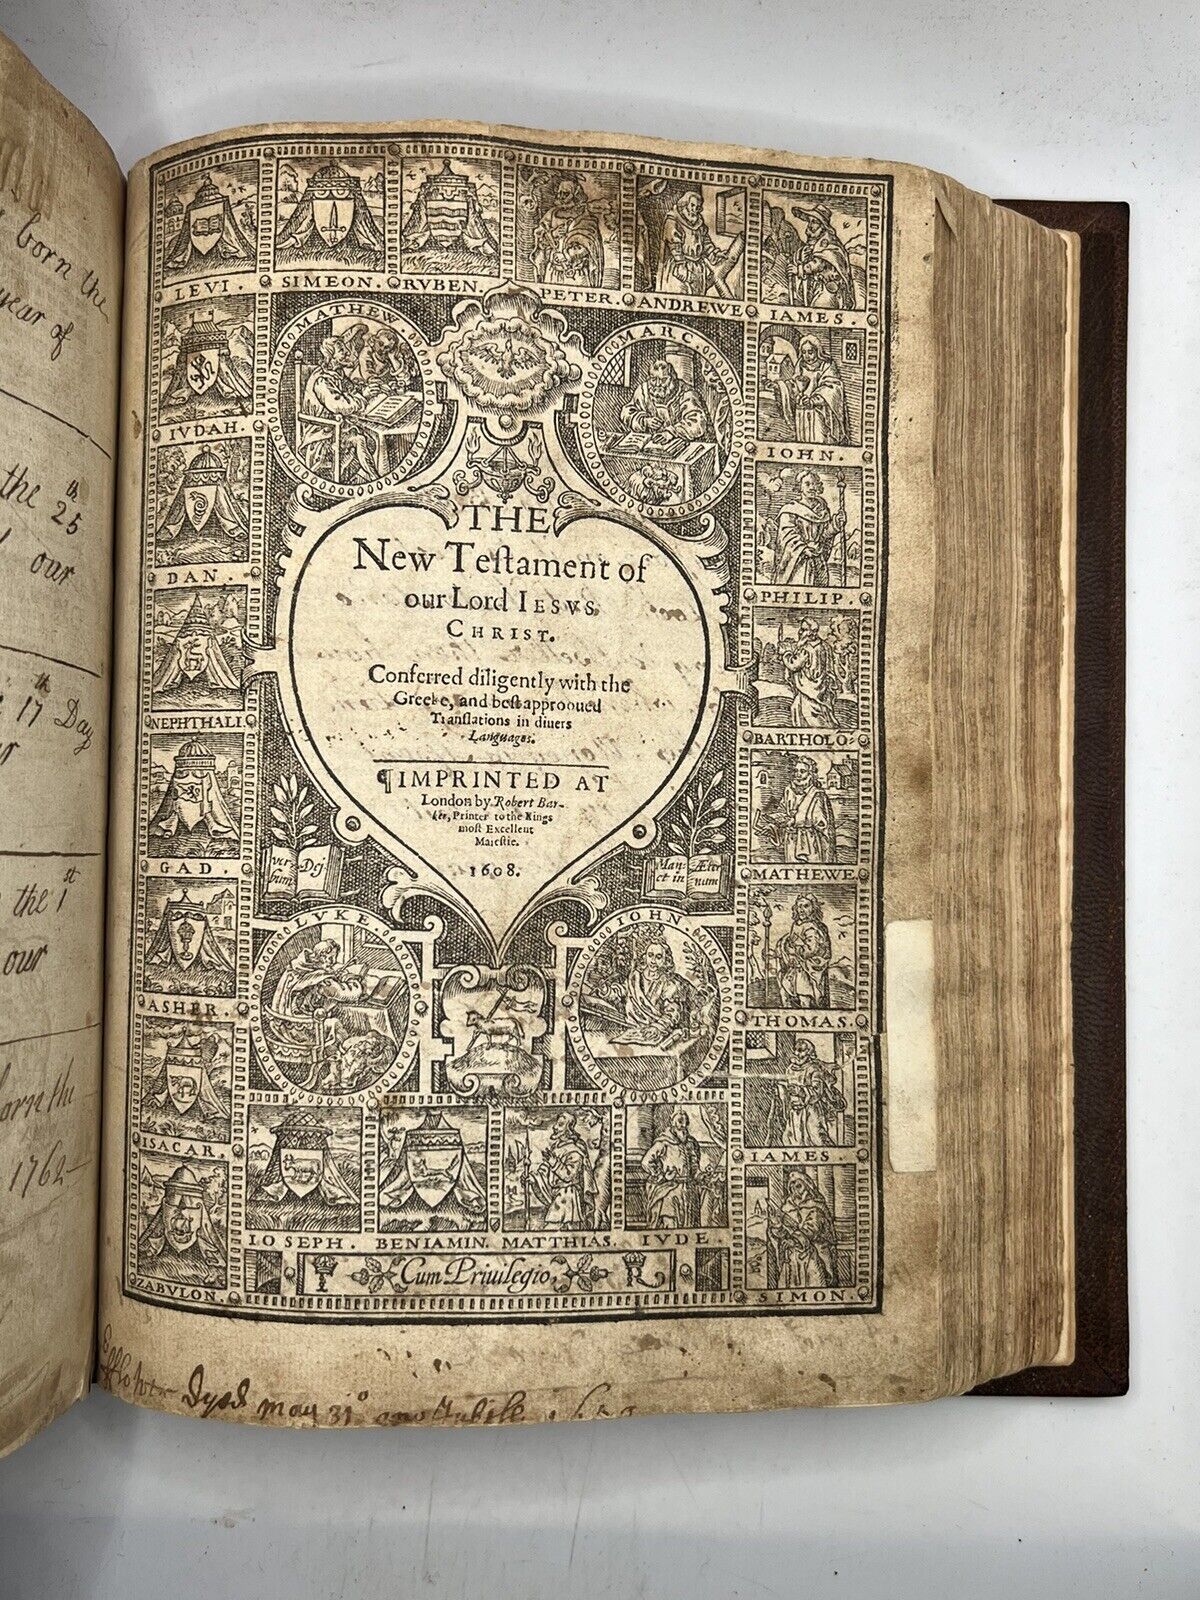 born the
year of
the 25th
our
17th Day
the 1st
our
born the
1762
LEVI. SIMEON. RVBEN. PETER. ANDREWE IAMES.
MATHEW. MARC.
IVDAH. IOHN.
DAN. PHILIP.
NEPHTHALI. BARTHOLO:
GAD. MATHEWE
ASHER. THOMAS.
ISACAR. IAMES.
ZABVLON. SIMON.
THE
New Teſtament of
our Lord IESVS
CHRIST.
Conferred diligently with the
Greeke, and beſt approoued
Tranſlations in diuers
Languages.
¶IMPRINTED AT
London by Robert Bar-
ker, Printer to the Kings
moſt Excellent
Maieſtie.
1608.
ver-
bum
Dej
Man-
et in
Æter
num
LVKE IOHN
IOSEPH. BENIAMIN. MATTHIAS. IVDE.
Cum Priuilegio,
R
may 31